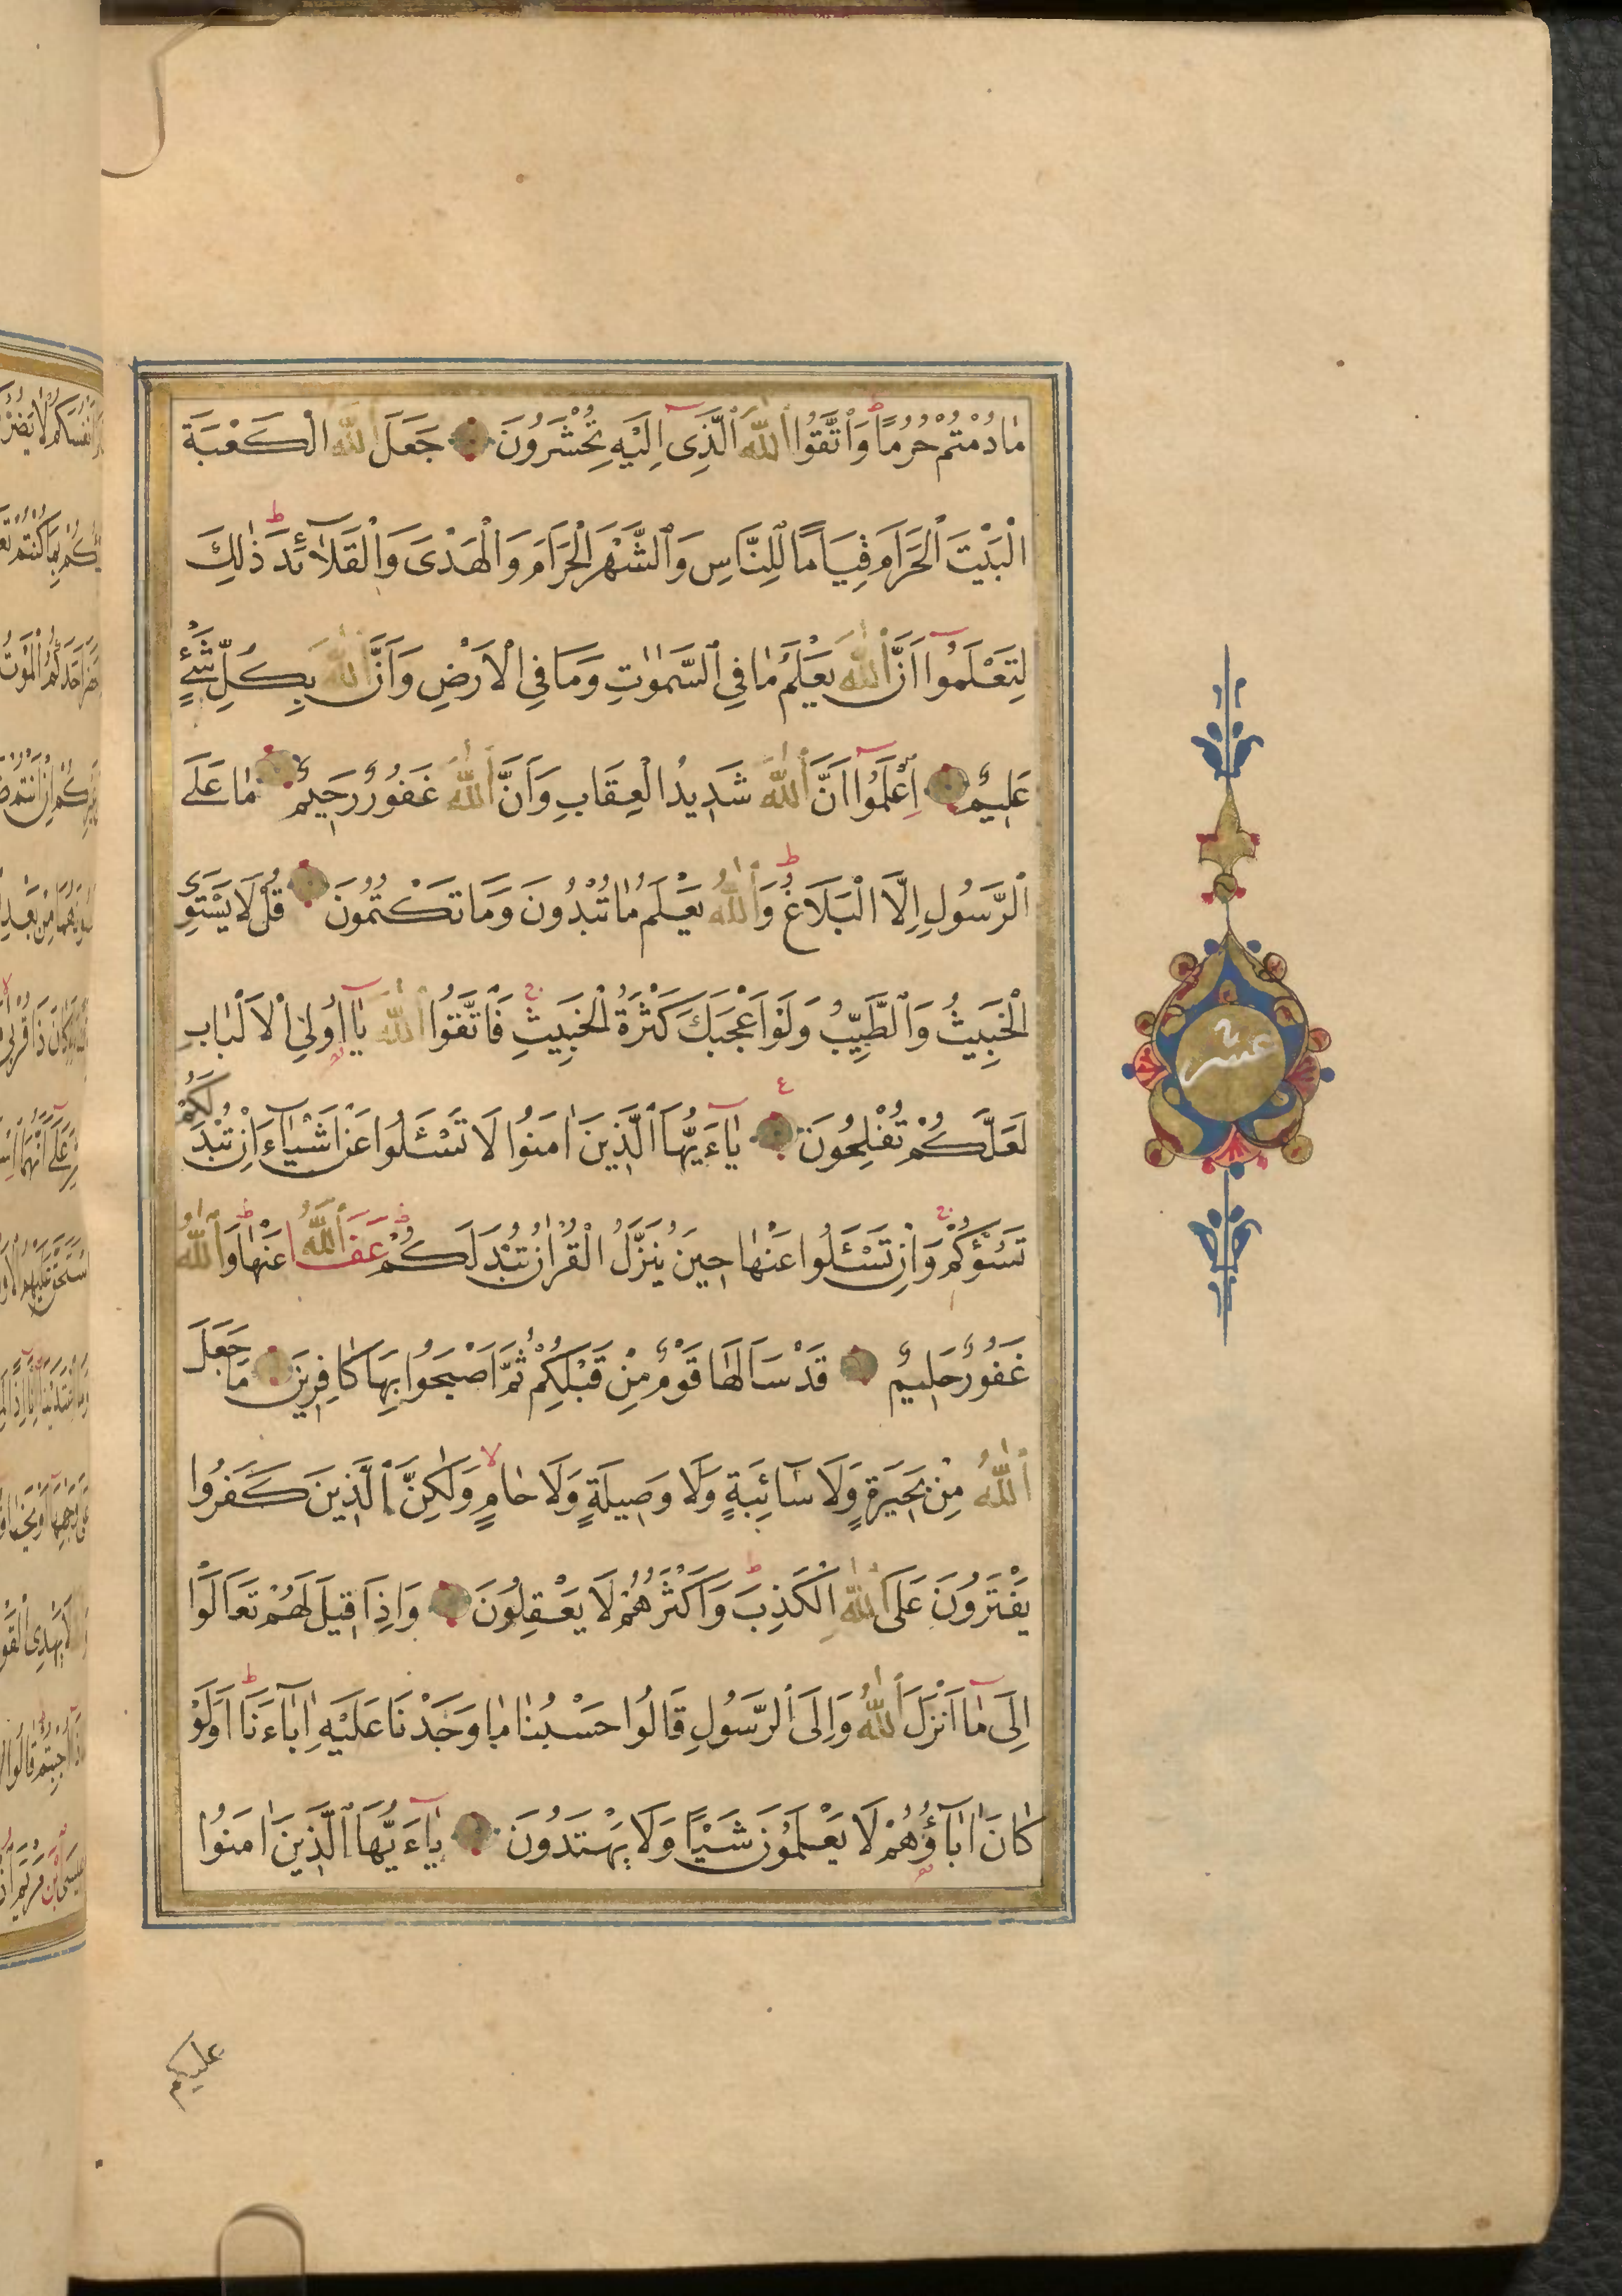 مَا دُمْتُمْ حُرُمًا وَاتَّقُوا اللّٰهَ الَّذِى اِلَيْهِ تُحْشَرُونَ جَعَلَ اللّٰهُ الْكَعْبَةَ
الْبَيْتَ الْحَرَامَ قِيَامًا لِلنَّاسِ وَالشَّهْرَ الْحَرَامَ وَالْهَدْىَ وَالْقَلَآئِدَ ذٰلِكَ
لِتَعْلَمُوا اَنَّ اللّٰهَ يَعْلَمُ مَا فِى السَّمٰوَاتِ وَمَا فِى الْاَرْضِ وَاَنَّ اللّٰهَ بِكُلِّ شَىْءٍ
عَلِيمٌ اِعْلَمُوا اَنَّ اللّٰهَ شَدِيدُ الْعِقَابِ وَاَنَّ اللّٰهَ غَفُورٌ رَحِيمٌ مَا عَلَى
الرَّسُولِ اِلَّا الْبَلَاغُ وَاللّٰهُ يَعْلَمُ مَا تُبْدُونَ وَمَا تَكْتُمُونَ قُلْ لَا يَسْتَوِى
الْخَبِيثُ وَالطَّيِّبُ وَلَوْ اَعْجَبَكَ كَثْرَةُ الْخَبِيثِ فَاتَّقُوا اللّٰهَ يَآ اُولِى الْاَلْبَابِ
لَعَلَّكُمْ تُفْلِحُونَ ع يَآءَيُّهَا الَّذِينَ اٰمَنُوا لَا تَسْئَلُوا عَنْ اَشْيَآءَ اِنْ تُبْدَ لَكُمْ
تَسُؤْكُمْ وَاِنْ تَسْئَلُوا عَنْهَا حِينَ يُنَزَّلُ الْقُرْاٰنُ تُبْدَ لَكُمْ عَفَا اللّٰهُ عَنْهَا وَاللّٰهُ
غَفُورٌ حَلِيمٌ قَدْ سَاَلَهَا قَوْمٌ مِنْ قَبْلِكُمْ ثُمَّ اَصْبَحُوا بِهَا كَافِرِينَ مَا جَعَلَ
اللّٰهُ مِنْ بَحِيرَةٍ وَلَا سَآئِبَةٍ وَلَا وَصِيلَةٍ وَلَا حَامٍ وَلٰكِنَّ الَّذِينَ كَفَرُوا
يَفْتَرُونَ عَلَى اللّٰهِ الْكَذِبَ وَاَكْثَرُهُمْ لَا يَعْقِلُونَ وَاِذَا قِيلَ لَهُمْ تَعَالَوْا
اِلٰى مَآ اَنْزَلَ اللّٰهُ وَاِلَى الرَّسُولِ قَالُوا حَسْبُنَا مَا وَجَدْنَا عَلَيْهِ اٰبَآءَنَا اَوَلَوْ
كَانَ اٰبَآؤُهُمْ لَا يَعْلَمُونَ شَيْئًا وَلَا يَهْتَدُونَ يَآءَيُّهَا الَّذِينَ اٰمَنُوا
عليكم
عشر